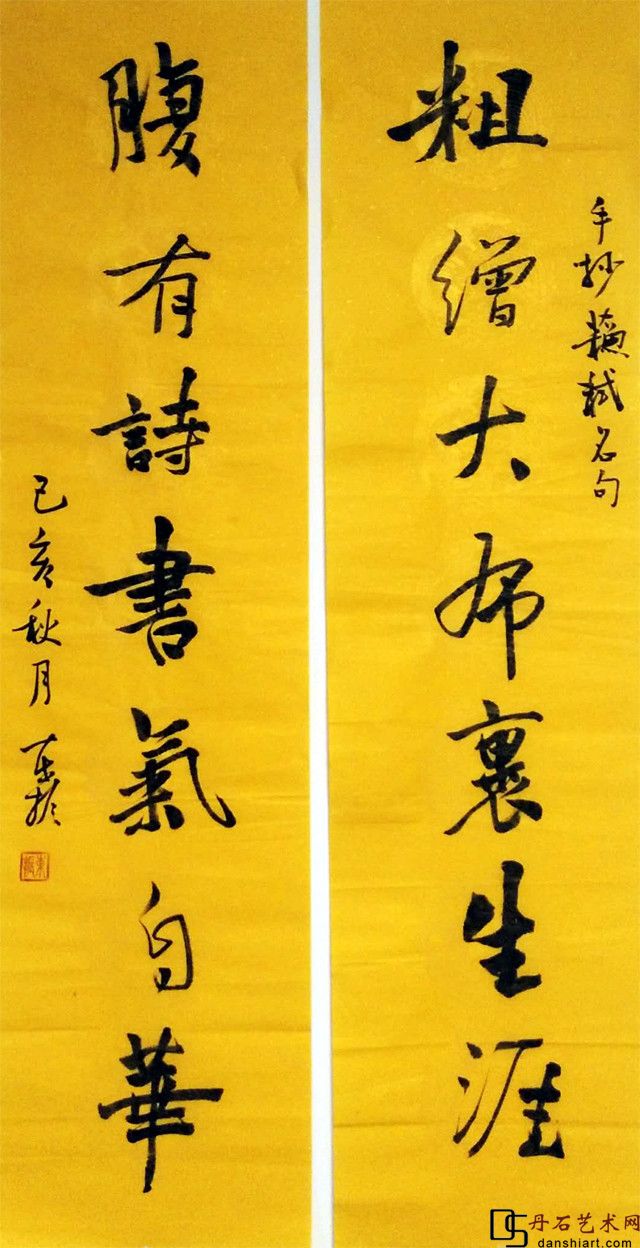 手抄蘇軾名句
粗繒大布裹生涯
腹有詩書氣自華
己亥秋月
DS 丹石艺术网
danshiart.com